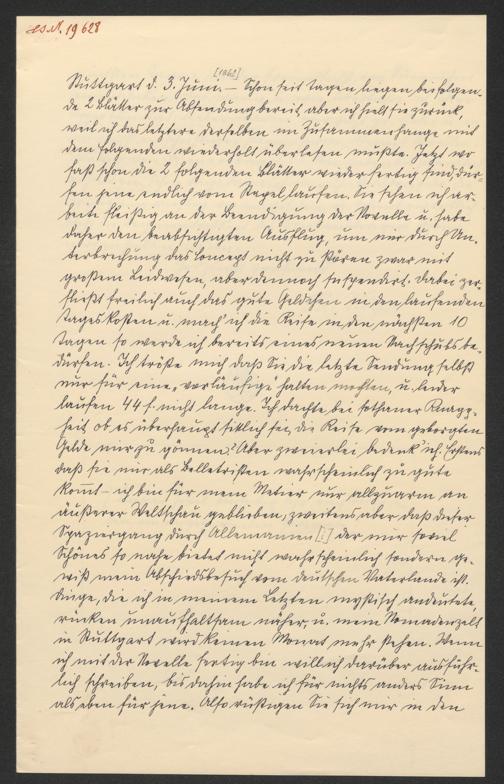 H.I.N. 19628
[1862]
Stuttgart d. 3. Juni. – Schon seit Tagen liegen beifolgen-
de 2 Blätter zur Absendung bereit, aber ich hielt sie zurück
weil ich das letztere derselben im Zusammenhange mit
dem Folgenden wiederholt überlesen mußte. Jetzt wo
fast schon die 2 folgenden Blätter wieder fertig sind, dür-
fen jene endlich vom Stapel laufen. Sie sehen ich ar-
beite fleißig an der Beendigung der Novelle u. habe
daher den beabsichtigten Ausflug, um mir durch Un-
terbrechung das Concept nicht zu stören zwar mit
großem Leidwesen, aber dennoch suspendirt. Dabei zer-
fließt freilich auch das gute Geldchen in den laufenden
Tageskosten u. mach' ich die Reise in den nächsten 10
Tagen so werde ich bereits eines neuen Nachschubs be-
dürfen. Ich tröste mich daß Sie die letzte Sendung selbst
nur für eine „vorläufige" halten mochten, u. leider
laufen 44 f. nicht lange. Ich dachte bei sothaner Knapp-
heit ob es überhaupt sittlich sei, die Reise vom geborgten
Gelde mir zu gönnen? Aber zweierlei bedenk' ich. Erstens
daß sie mir als Belletristen wahrscheinlich zu gute
kommt – ich bin für mein Metier nur allzuarm an
äußerer Weltschau geblieben, zweitens aber daß dieser
Spaziergang durch Allemannien [:] der mir soviel
Schönes so nahe bietet nicht wahrscheinlich sondern ge-
wiß mein Abschiedsbesuch vom deutschen Vaterlande ist.
Dinge, die ich in meinem Letzten mystisch andeutete,
rücken unaufhaltsam näher, u. mein Nomadenzelt
in Stuttgart wird keinen Monat mehr stehen. Wenn
ich mit der Novelle fertig bin will ich darüber ausführ-
lich schreiben, bis dahin habe ich für nichts anders Sinn
als eben für jene. Also rüstigen Sie sich nur in den